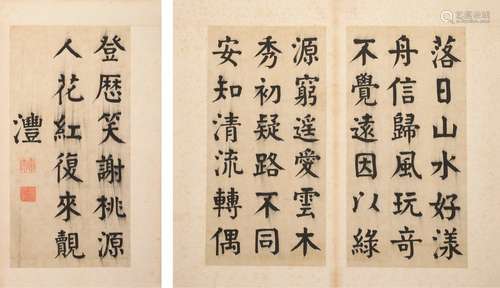 落日山水好漾
舟信歸風玩奇
不覺遠因以緣
源窮遥愛雲木
秀初疑路不同
安知清流轉偶
登歷笑謝桃源
人花紅復來覿
灃